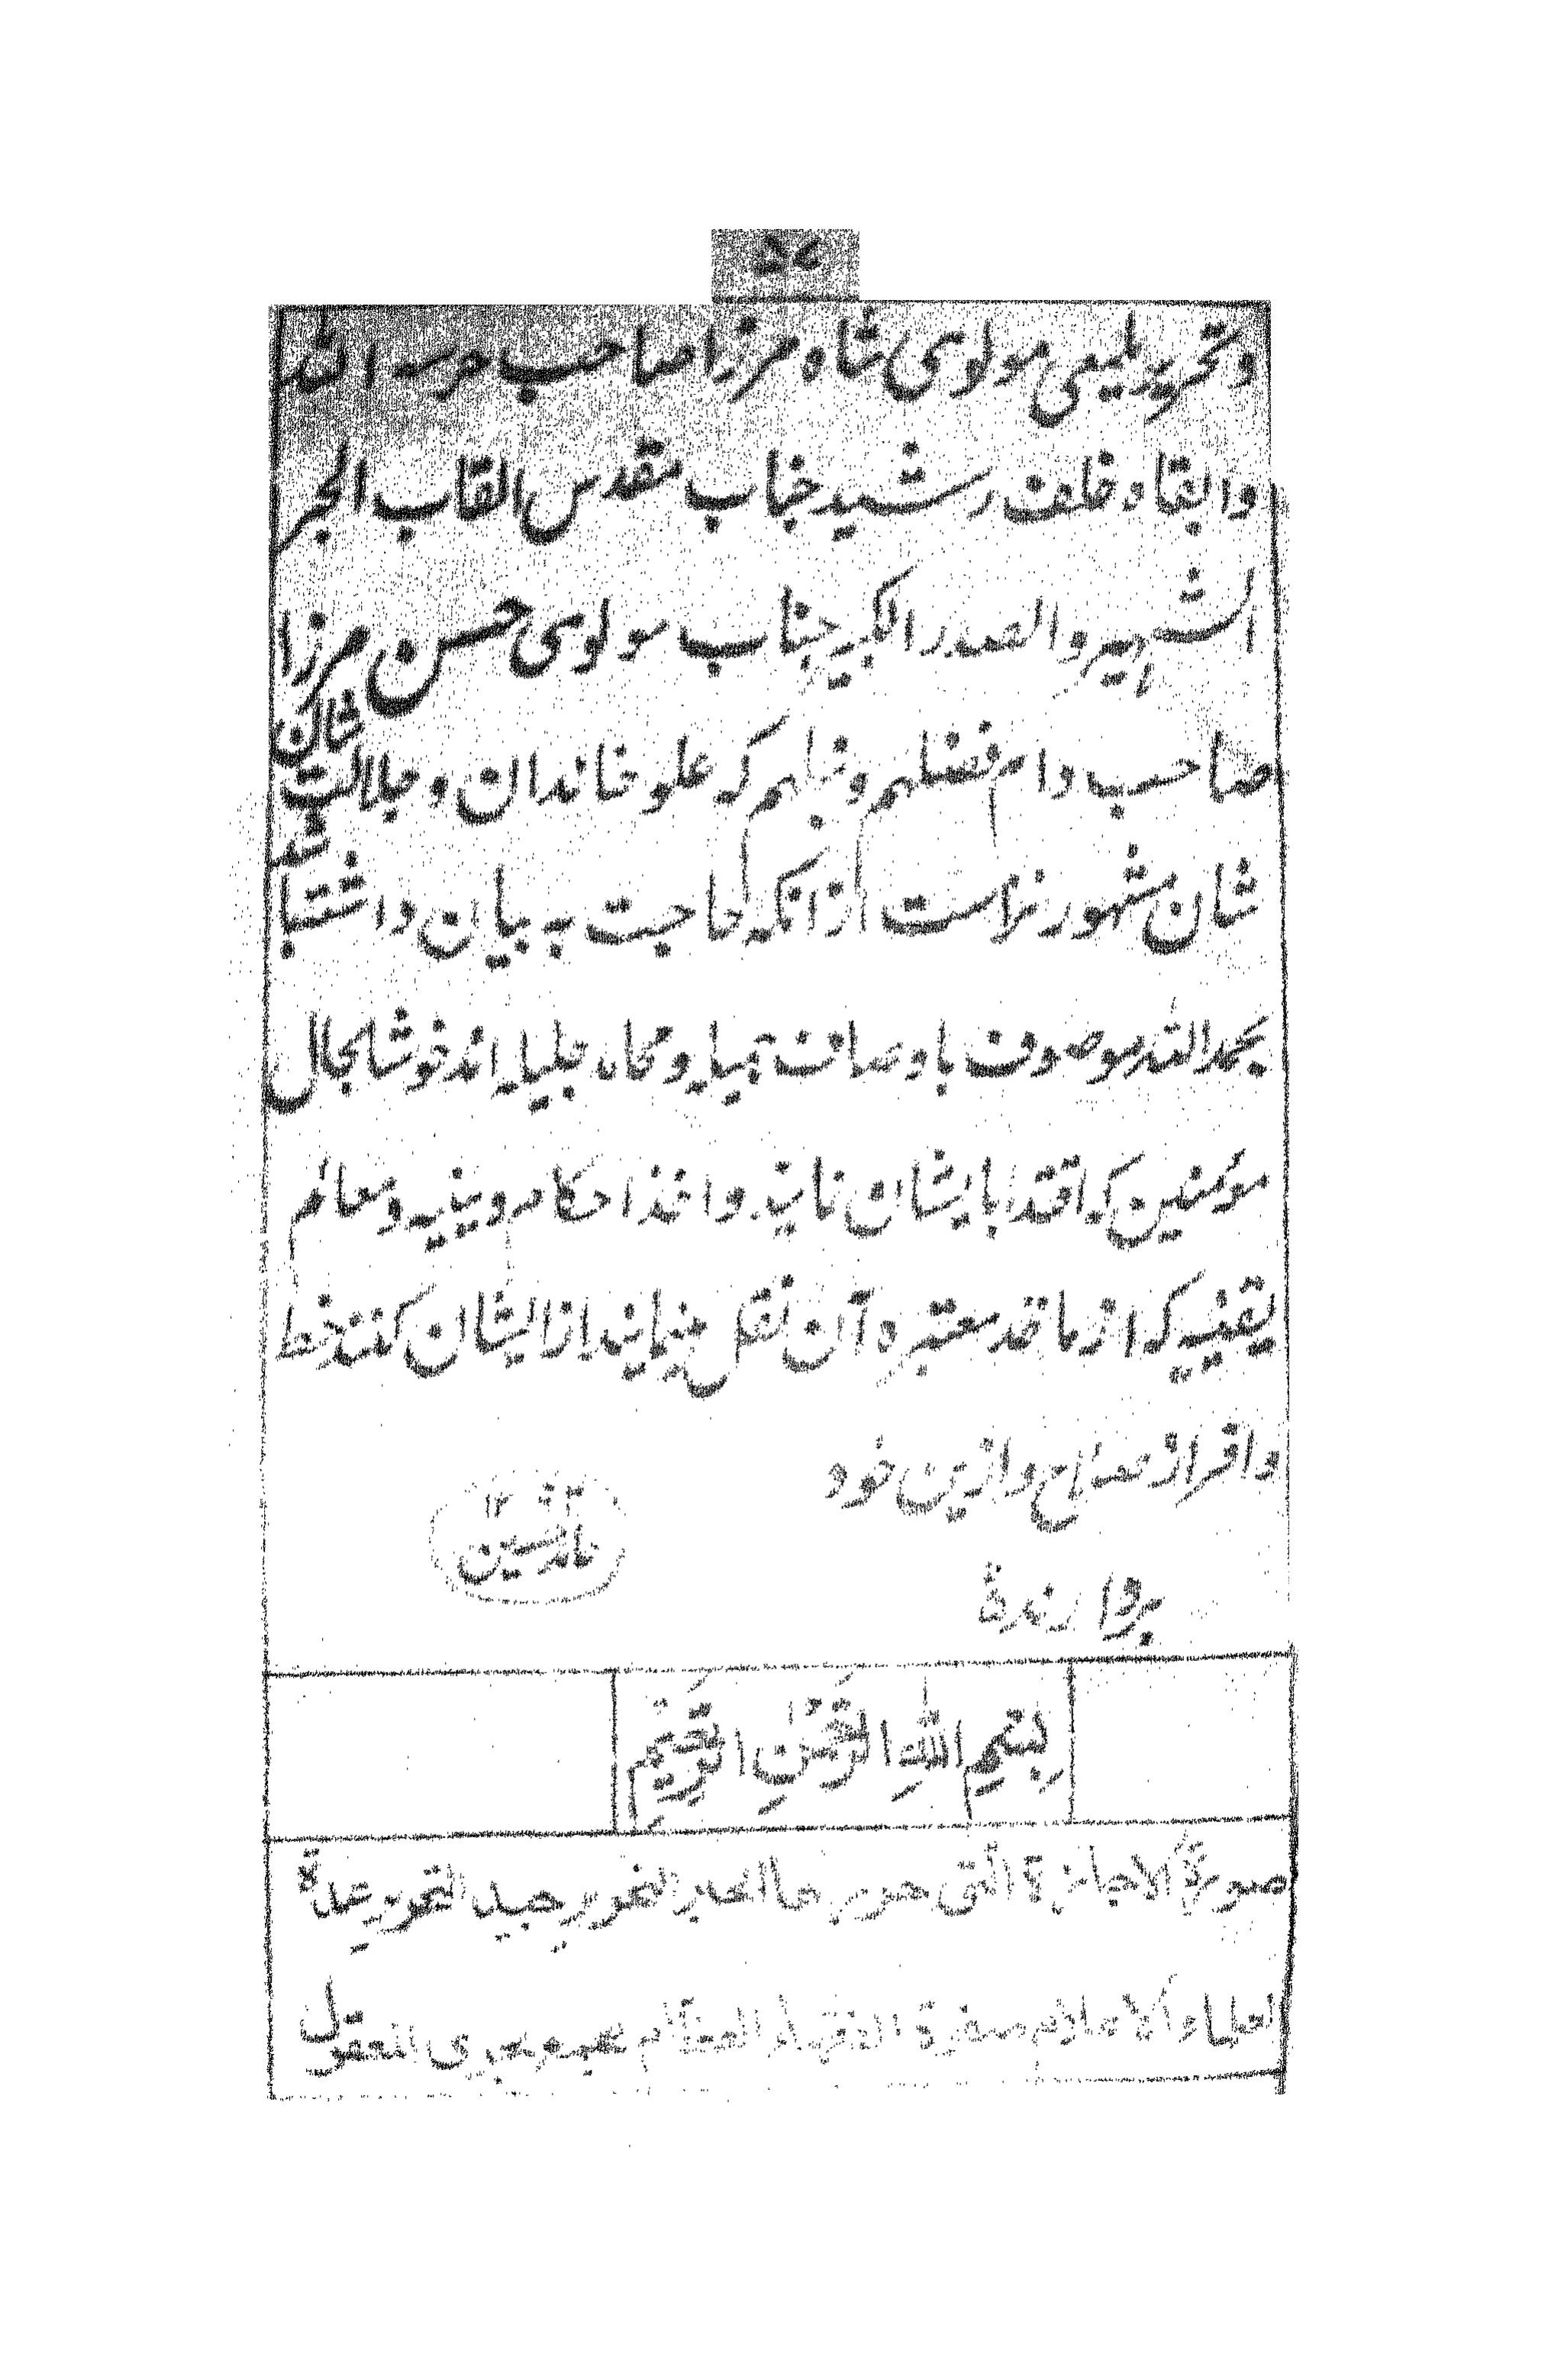 ۵۷
وتحریر یلمعی مولوی شاه مرزا صاحب حرسه الله
وابقاه خلف رشید جناب مقدس القاب الحبر
الشهیر والصدر الکبیر جناب مولوی حسن مرزا
صاحب دام فضلهم ونبلهم که علو خاندان و جلالت شان
شان مشهور تر است ازانکه حاجت به بیان و اشتبا
بحمد الله موصوف باوصاف جمیله و محامد جلیله اند خوشابحال
مؤمنین که اقتدا بایشان نمایند واخذ احکام دینیه و معالم
یقینیه که از ماخذ معتبره آن نقل مینمایند ازایشان کنند حظ
وافر از صلاح دارین خود
بردارند
بسم الله الرحمن الرحیم
صورة الاجازة التی حررها الحبر النحریر جید التحریر عمدة
العلماء الاعلام صفوة الفقهاء العظام المعقول